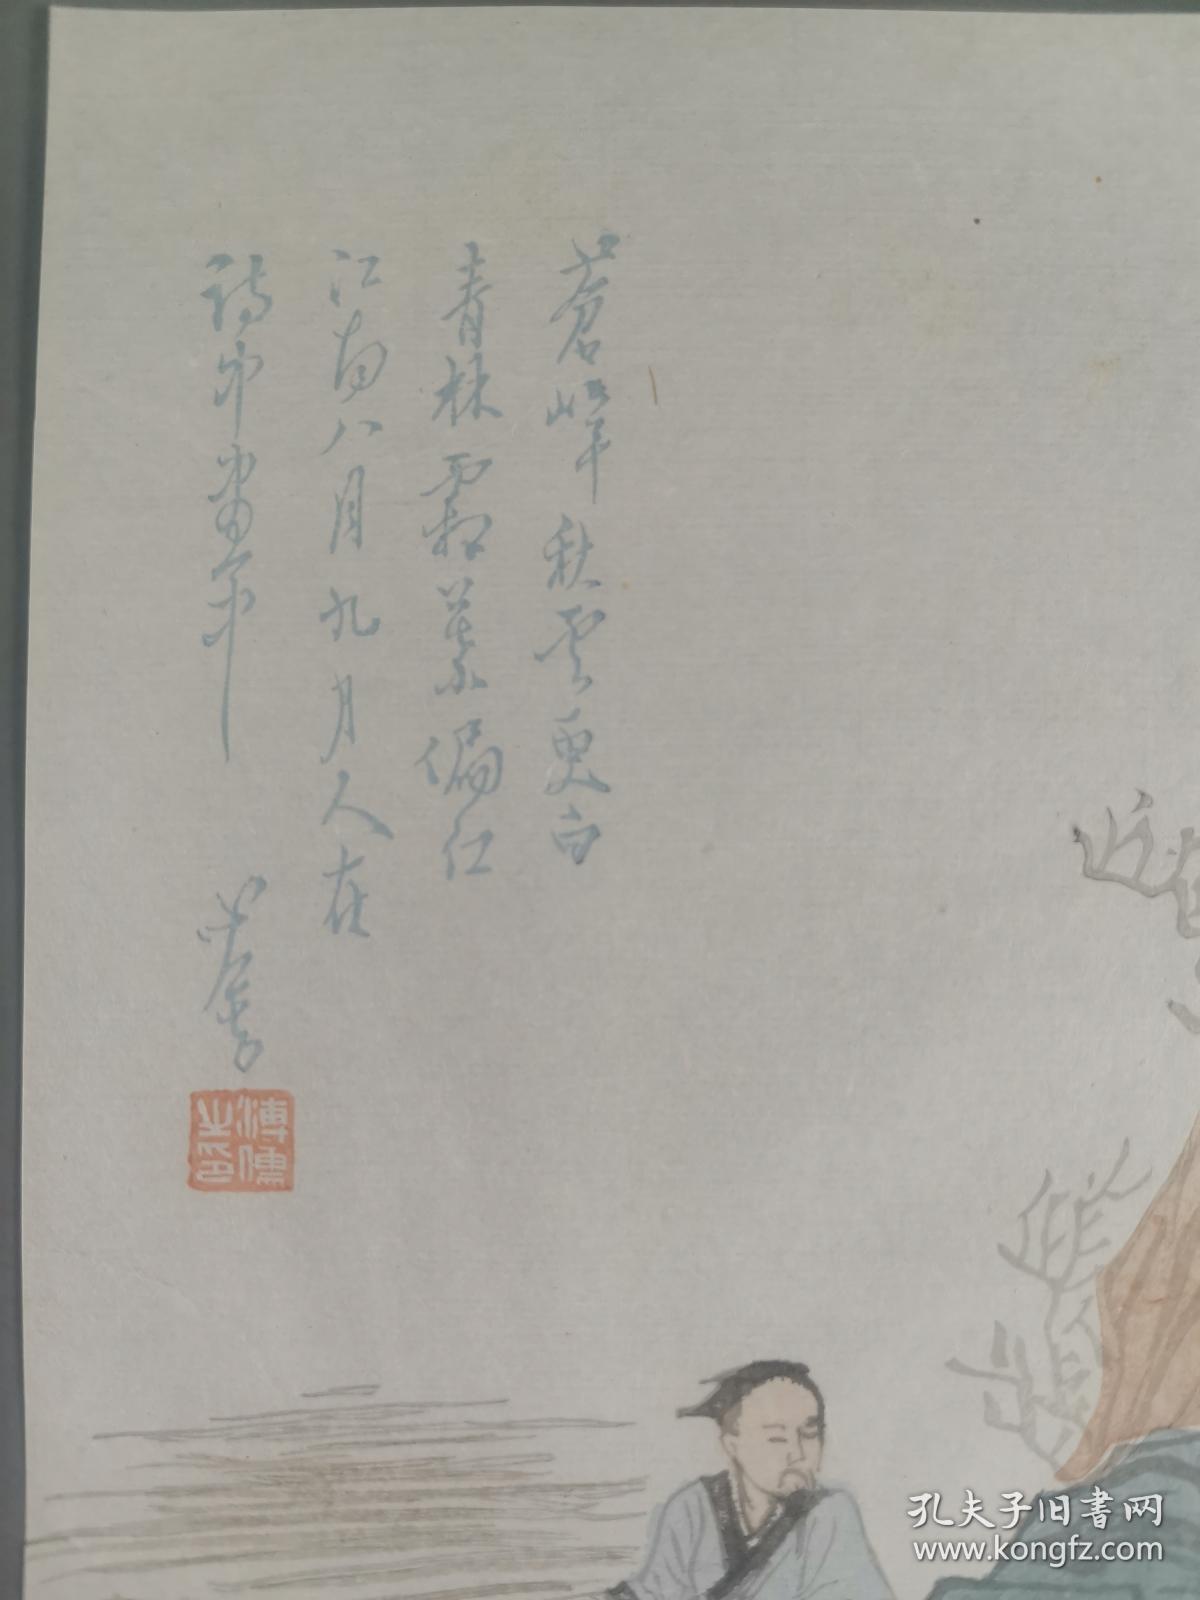 蒼峰秋雲更白
青林霜葉偏紅
江南八月九月人在
詩中畫中
心畬
溥儒之印
孔夫子旧书网
www.kongfz.com